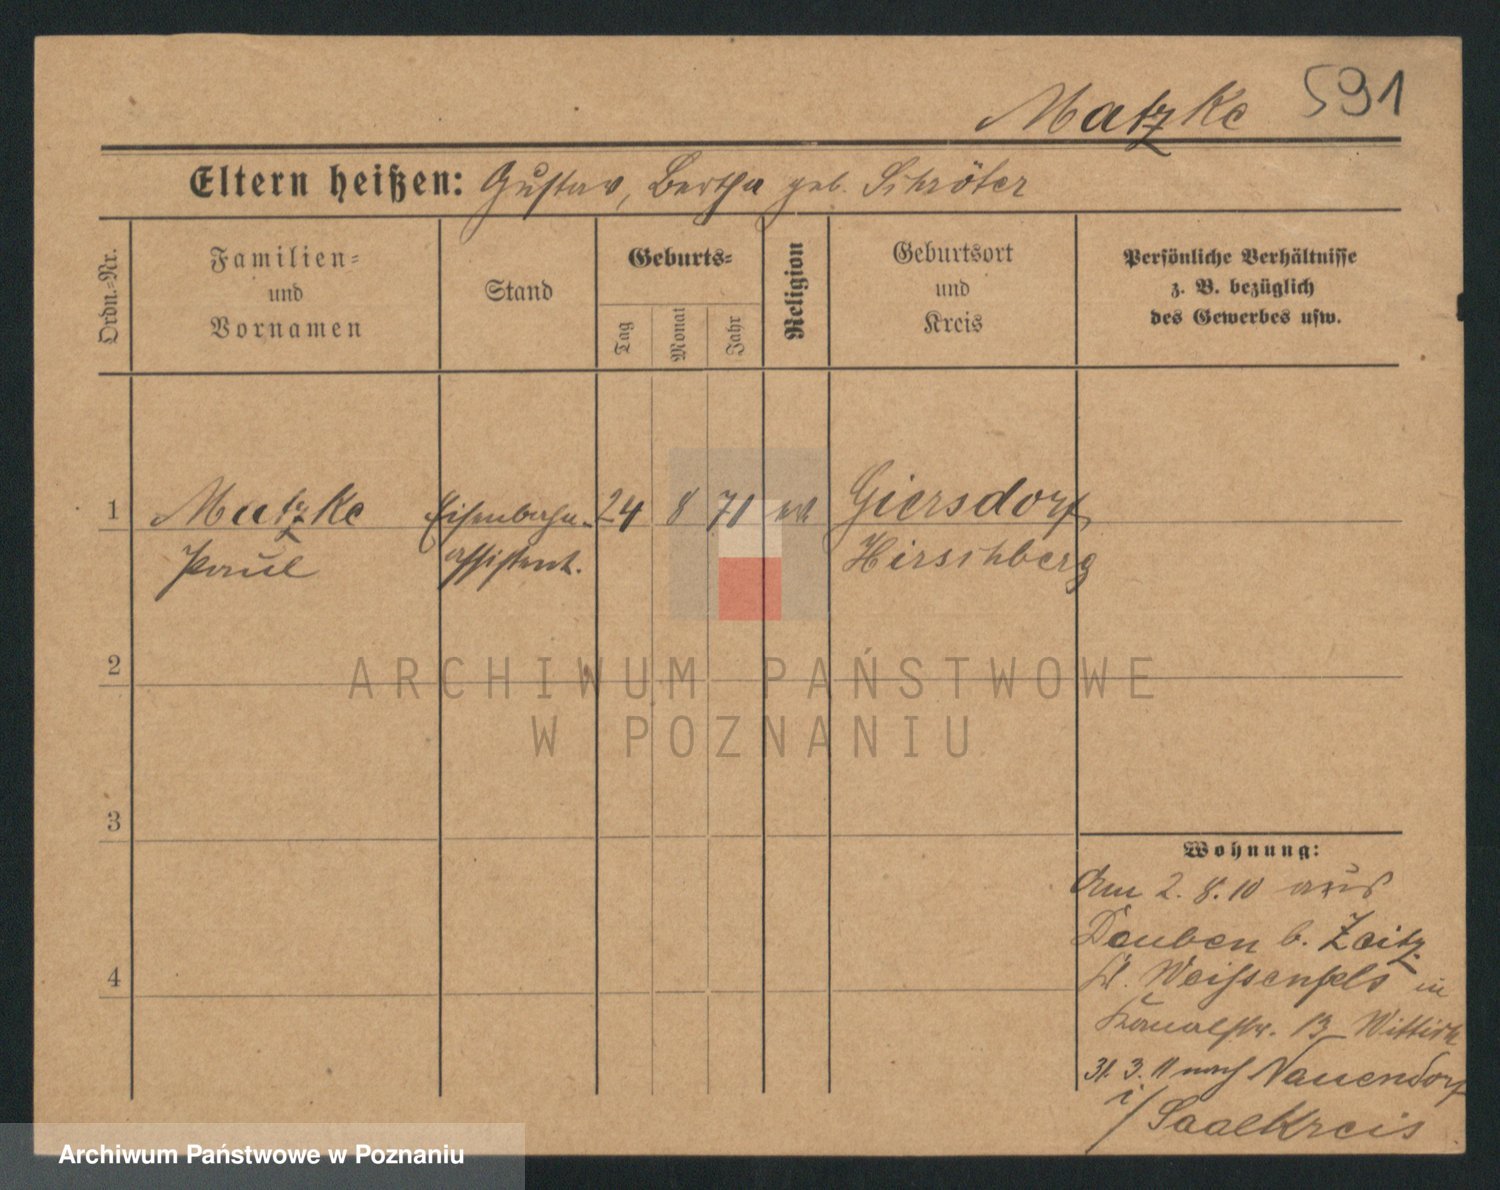 Matzke 591
Eltern heißen: Gustav, Bertha geb. Schröter
Ordn.-Nr.
Familien-
und
Vornamen
Stand
Geburts-
Tag
Monat
Jahr
Religion
Geburtsort
und
Kreis
Persönliche Verhältnisse
z. B. bezüglich
des Gewerbes usw.
1 Matzke Eisenbahn- 24 8 71 Giersdorf
Paul assistent. Hirschberg
2
ARCHIWUM PAŃSTWOWE
W POZNANIU
3
Wohnung:
Am 2. 8. 10 aus
Deuben b. Zeitz
Weißenfels in
Kanalstr. 13
4
31. 3. 11 nach Nauendorf
i/ Saalkreis
Archiwum Państwowe w Poznaniu